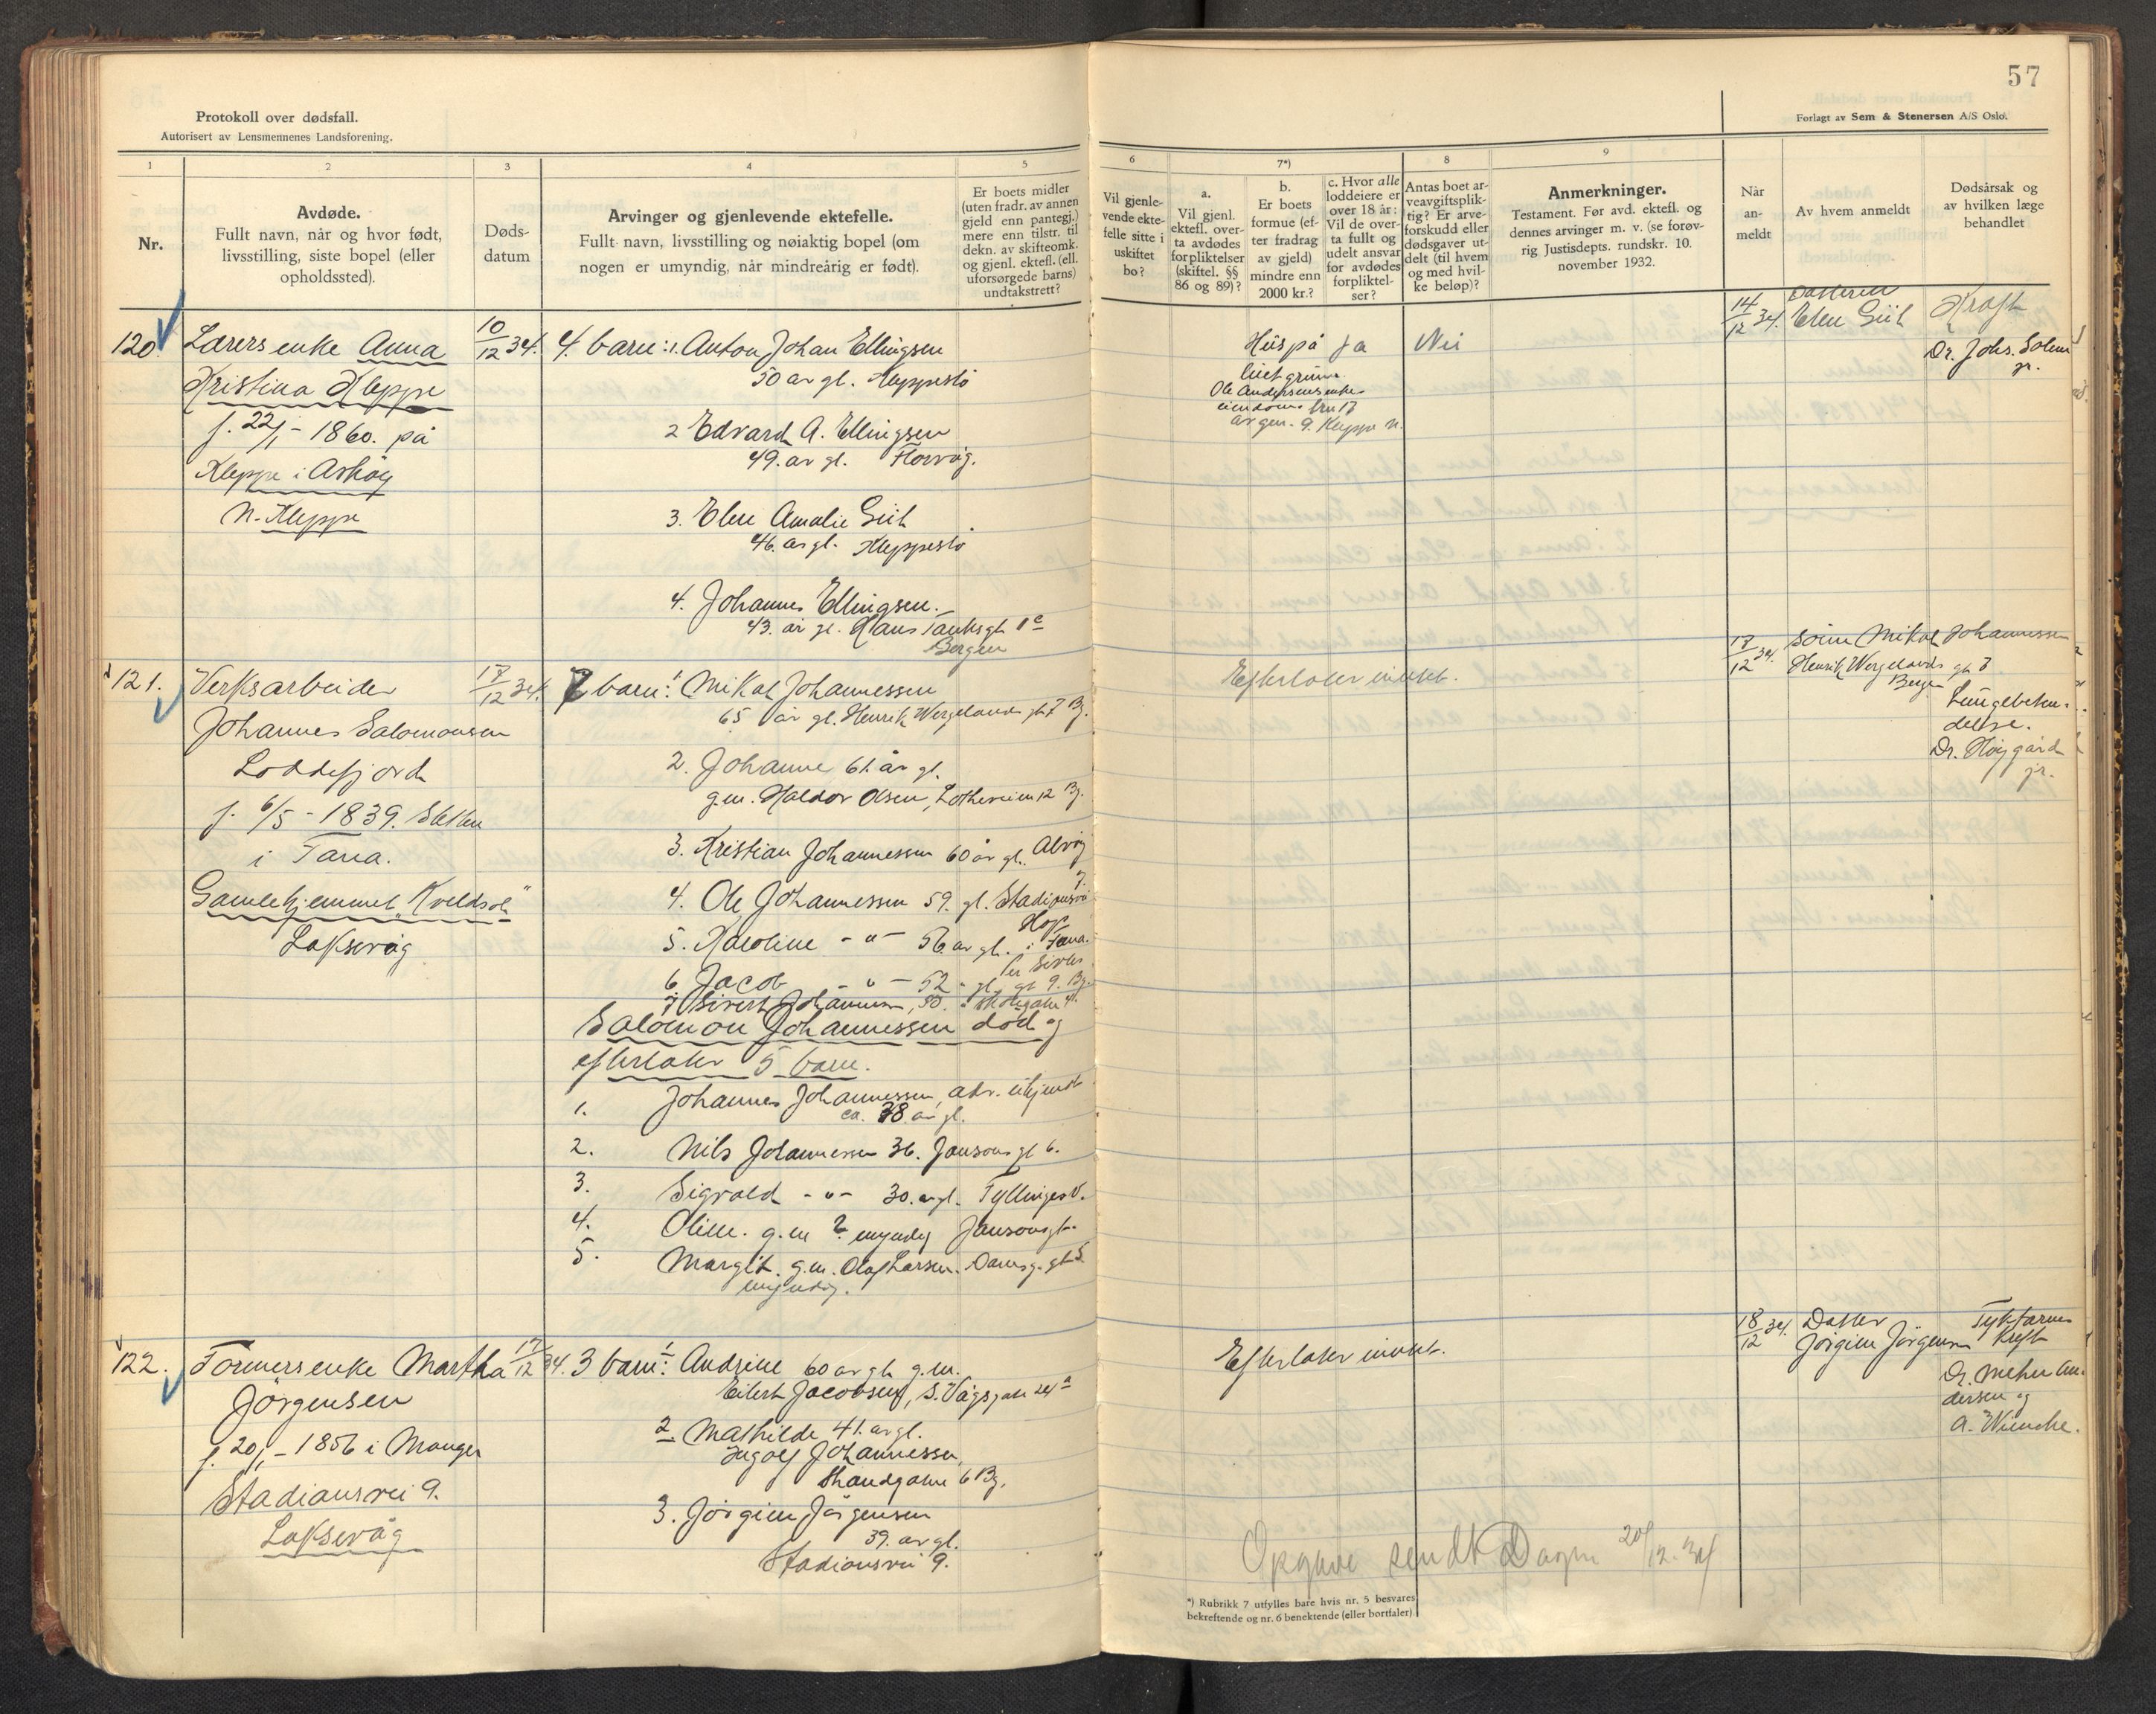 57
Protokoll over dødsfall.
Autorisert av Lensmennenes Landsforening.
Forlagt av Sem & Stenersen A/S Oslo.
1
2
3
4
5
6
7*)
8
9
Nr.
Avdøde.
Fullt navn, når og hvor født,
livsstilling, siste bopel (eller
opholdssted).
Døds-
datum
Arvinger og gjenlevende ektefelle.
Fullt navn, livsstilling og nøiaktig bopel (om
nogen er umyndig, når mindreårig er født).
Er boets midler
(uten fradr. av annen
gjeld enn pantegj.)
mere enn tilstr. til
dekn. av skifteomk.
og gjenl. ektefl. (ell.
uforsørgede barns)
undtakstrett?
Vil gjenle-
vende ekte-
felle sitte i
uskiftet
bo?
a.
Vil gjenl.
ektefl. over-
ta avdødes
forpliktelser
(skiftel. §§
86 og 89)?
b.
Er boets
formue (ef-
ter fradrag
av gjeld)
mindre enn
2000 kr.?
c. Hvor alle
loddeiere er
over 18 år:
Vil de over-
ta fullt og
udelt ansvar
for avdødes
forpliktel-
ser?
Antas boet ar-
veavgiftsplik-
tig? Er arve-
forskudd eller
dødsgaver ut-
delt (til hvem
og med hvil-
ke beløp)?
Anmerkninger.
Testament. Før avd. ektefl. og
dennes arvinger m. v. (se forøv-
rig Justisdepts. rundskr. 10.
november 1932.
Når
an-
meldt
Av hvem anmeldt
Dødsårsak og
av hvilken læge
behandlet
120.
Lærers enke Anna
Kristina Kleppe
f. 22/1 - 1860. på
Kleppe i Askøy
N. Kleppe
10/12 34.
4. barn: 1. Anton Johan Ellingsen
50 år gl. Kleppestø
2 Edvard A. Ellingsen
49. år gl. Florvåg.
3. Elen Amalie
46. år gl. Kleppestø
4. Johannes Ellingsen.
43. år gl. Hans Tanksgt 1c
Bergen
Hus på
Ole Andersens enke
av gnr. 9. Kleppe n.
Ja
Nei
14/12 34.
Datteren
Elen
Kreft
Dr. Johs. Solem
jr.
121.
Verksarbeider
Johannes Salomonsen
Loddefjord
f. 6/5 - 1839.
i Fana.
Gamlehjemmet "Kveldsol"
Laksevåg
17/12 34.
7 barn: 1 Mikal Johannessen
65 år gl. Henrik Wergelands gt 7 Bg.
2. Johanne 61. år gl.
g.m. Haldor Olsen, Lotheveien 12 Bg.
3. Kristian Johannessen 60 år gl. Alvøy
4. Ole Johannessen 59. gl. Stadionsvei 7.
5. Karoline - " - 56 år gl. Hop i Fana.
6. Jacob - " - 52 " gl. gt 9. Bg.
7 Sivert Johannessen, 50.
Salomon Johannessen død og
efterlater 5 barn.
1. Johannes Johannessen, adr. ukjendt
ca. 38 år gl.
2. Nils Johannessen 36. Jansonsgt 6.
3. Sigvald - " - 30. år gl. Tyllingsv.
4. Oline. g.m ? myndig Jansonsgt.
5. Margit. g.m. Olaf Larsen. Damsg. gt 5.
myndig.
Efterlater intet.
17/12 34.
Sønn Mikal Johannessen
Henrik Wergelands gt 7
Bergen
Lungebeten-
delse.
Dr. Høygård
jr.
122.
Formers enke Martha
Jørgensen
f. 20/1 - 1856 i Manger
Stadionsvei 9.
Laksevåg
17/12 34.
3 barn: 1 Andrine 60 år gl. g.m.
Eilert Jacobsen, S. Vågsgate 24a
2 Mathilde 41. år gl.
Ingolf Johannessen,
Strandgaten 6 Bg.
3. Jørgine Jørgensen
39. år gl.
Stadionsvei 9.
Efterlater intet.
18/12 34.
Datter
Jørgine Jørgensen
Tyktarms
kreft
Dr. Meyer An-
dersen og
A. Wiencke.
Opgave sendt Dagen 20/12.34
*) Rubrikk 7 utfylles bare hvis nr. 5 besvares
bekreftende og nr. 6 benektende (eller bortfaler)